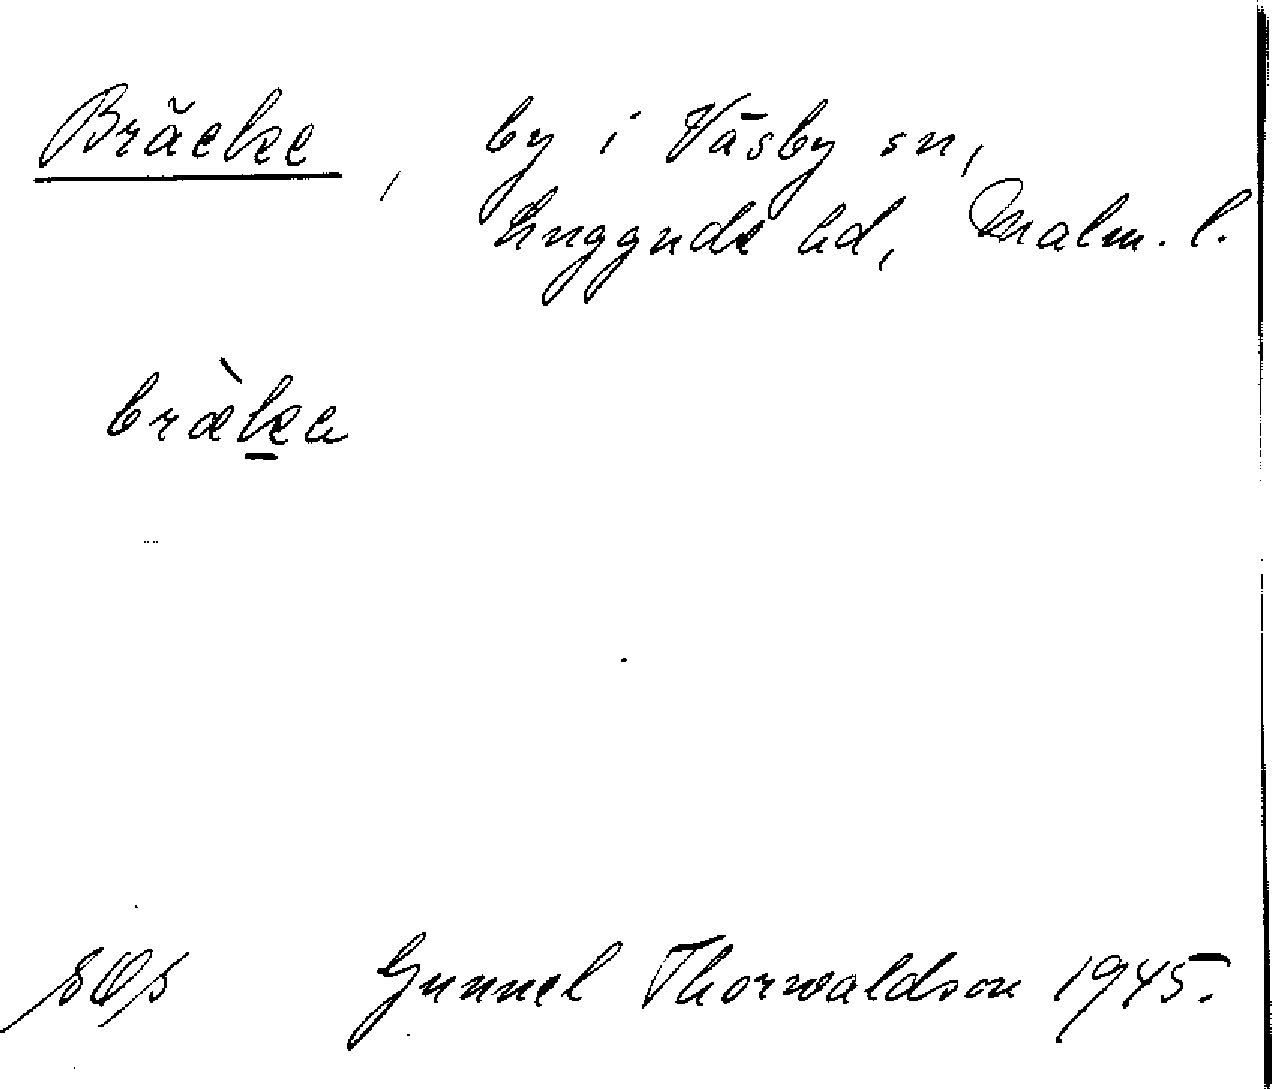 Bräcke, by i Väsby sn,
Luggude hd, Malm. l.
bræ̀k̠a
Gunnel Thorwaldson 1945.